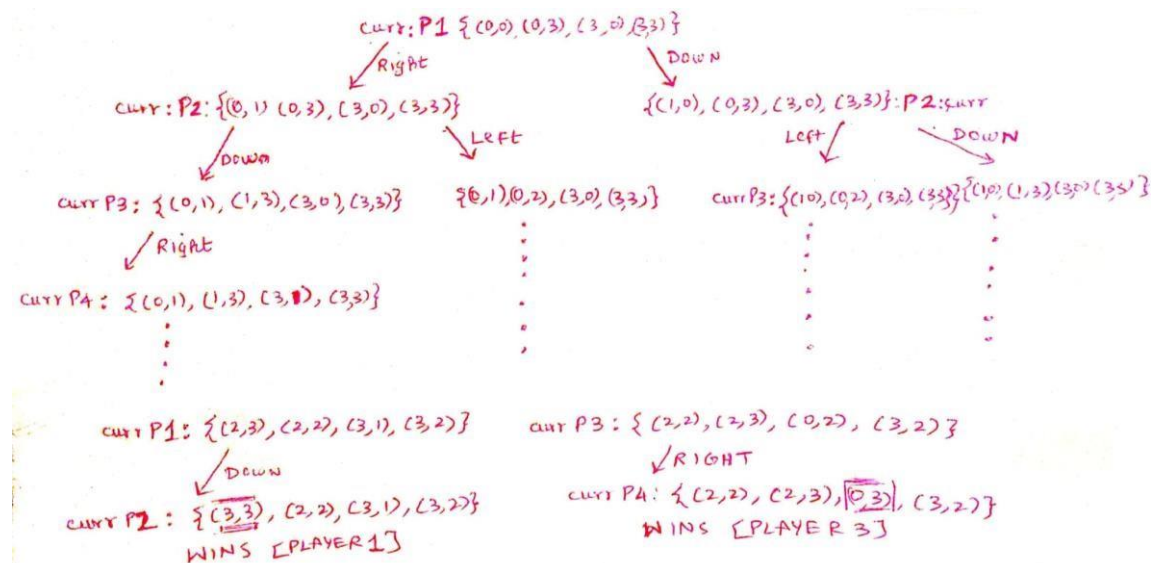 curr: P1 {(0,0), (0,3), (3,0), (3,3)}
Right DOWN
curr: P2: {(0,1) (0,3), (3,0), (3,3)} {(1,0), (0,3), (3,0), (3,3)}: P2: curr
DOWN Left Left DOWN
curr P3: {(0,1), (1,3), (3,0), (3,3)} {(0,1), (0,2), (3,0), (3,3)} curr P3: {(1,0), (0,2), (3,0), (3,3)} {(1,0), (1,3) (3,0) (3,3)}
Right
curr P4: {(0,1), (1,3), (3,1), (3,3)}
curr P1: {(2,3), (2,2), (3,1), (3,2)} curr P3: {(2,2), (2,3), (0,2), (3,2)}
DOWN RIGHT
curr P2: {(3,3), (2,2), (3,1), (3,2)} curr P4: {(2,2), (2,3), (0,3), (3,2)}
WINS [PLAYER 1] WINS [PLAYER 3]